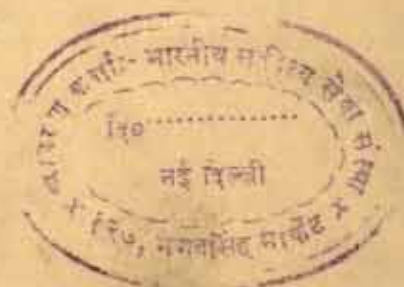 वितरण कर्त्ता:- भारतीय साहित्य सेवा संस्था
दि० ..............
नई दिल्ली
× १२७, भगतसिंह मार्केट ×